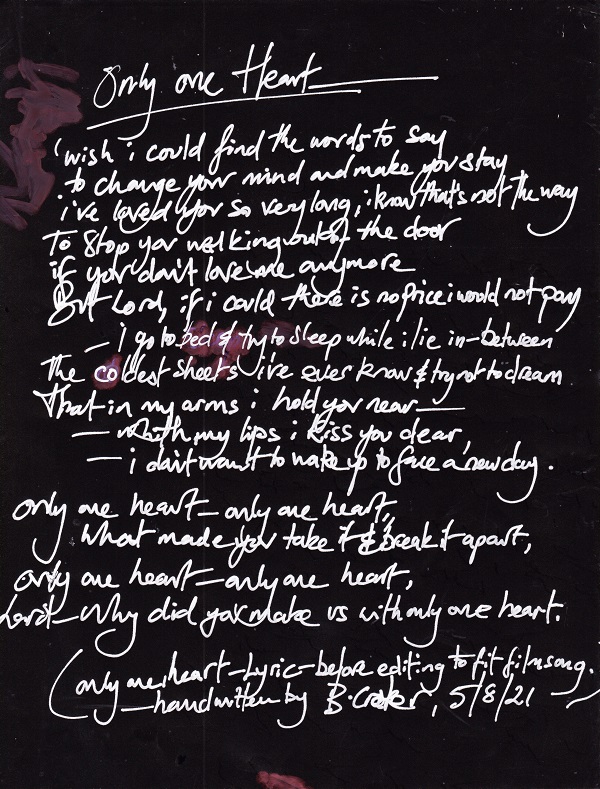 Only one Heart
'wish i could find the words to say
to change your mind and make you stay
i've loved you so very long, i know that's not the way
To stop you walking out of the door
if you don't love me anymore
But Lord, if i could there is no price i would not pay
— i go to bed & try to sleep while i lie in-between
The coldest sheets i've ever know & try not to dream
That in my arms i hold you near —
— with my lips i kiss you dear,
— i don't want to wake up to face a new day.
only one heart — only one heart,
what made you take it & break it apart,
only one heart — only one heart,
Lord — Why did you make us with only one heart.
(only one heart — Lyric — before editing to fit film song.
— handwritten by B. , 5/8/21)